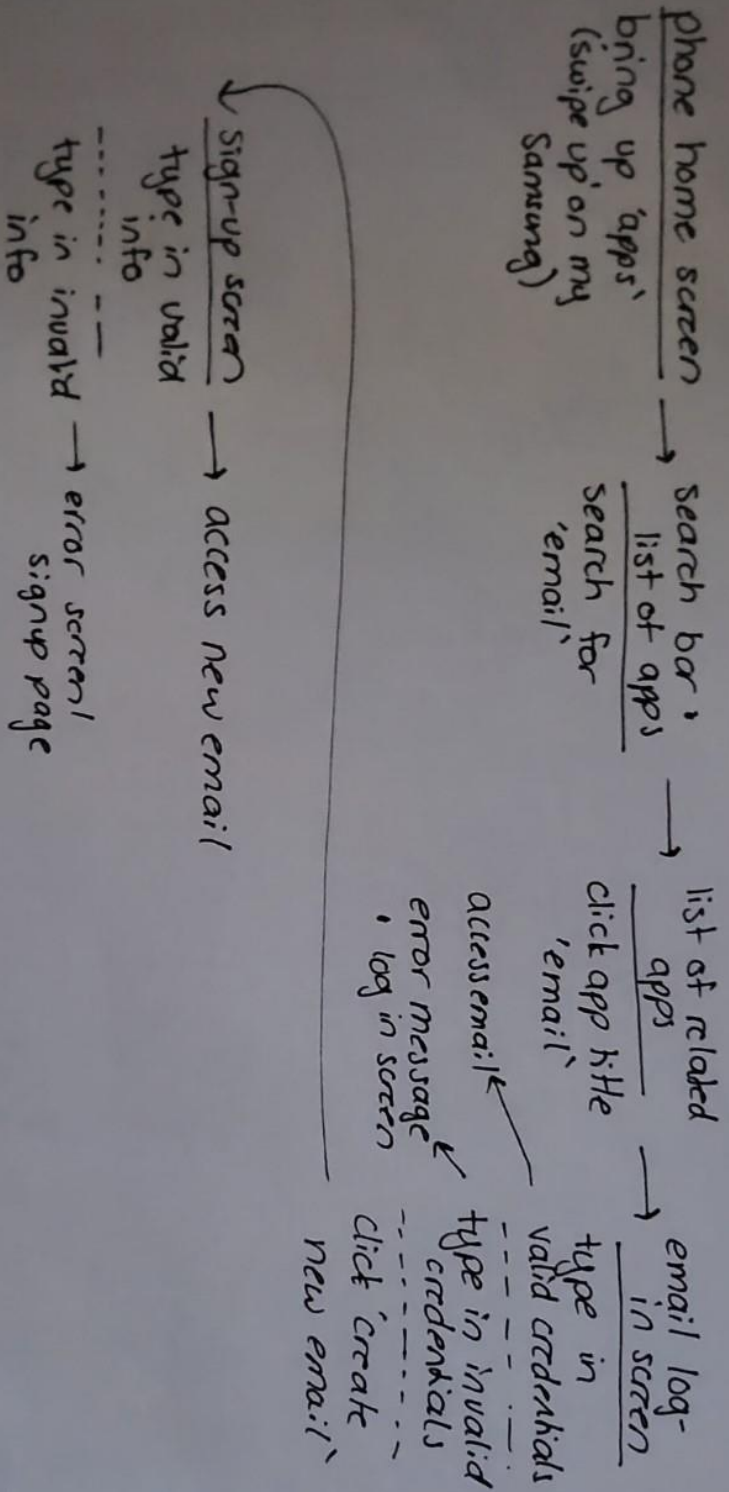 phone home screen →
bring up 'apps'
(swipe up' on my
Samsung)
search bar,
list of apps →
search for
'email'
list of related
apps →
click app title
'email'
email log-
in screen
type in
valid credentials
access email
type in invalid
credentials
error message
, log in screen
click 'create
new email'
sign-up screen → access new email
type in valid
info
type in invalid → error screen/
info
signup page